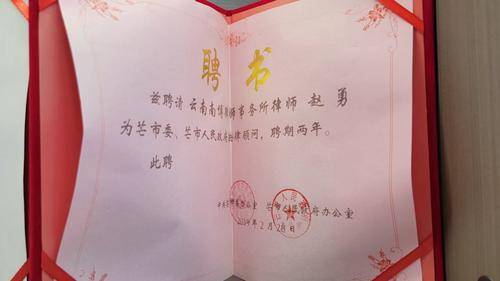 聘书
兹聘请 云南南 律师事务所律师 赵 勇
为芒市委、芒市人民政府法律顾问，聘期两年。
此聘
办公室 芒市人民政府办公室
年2月 日